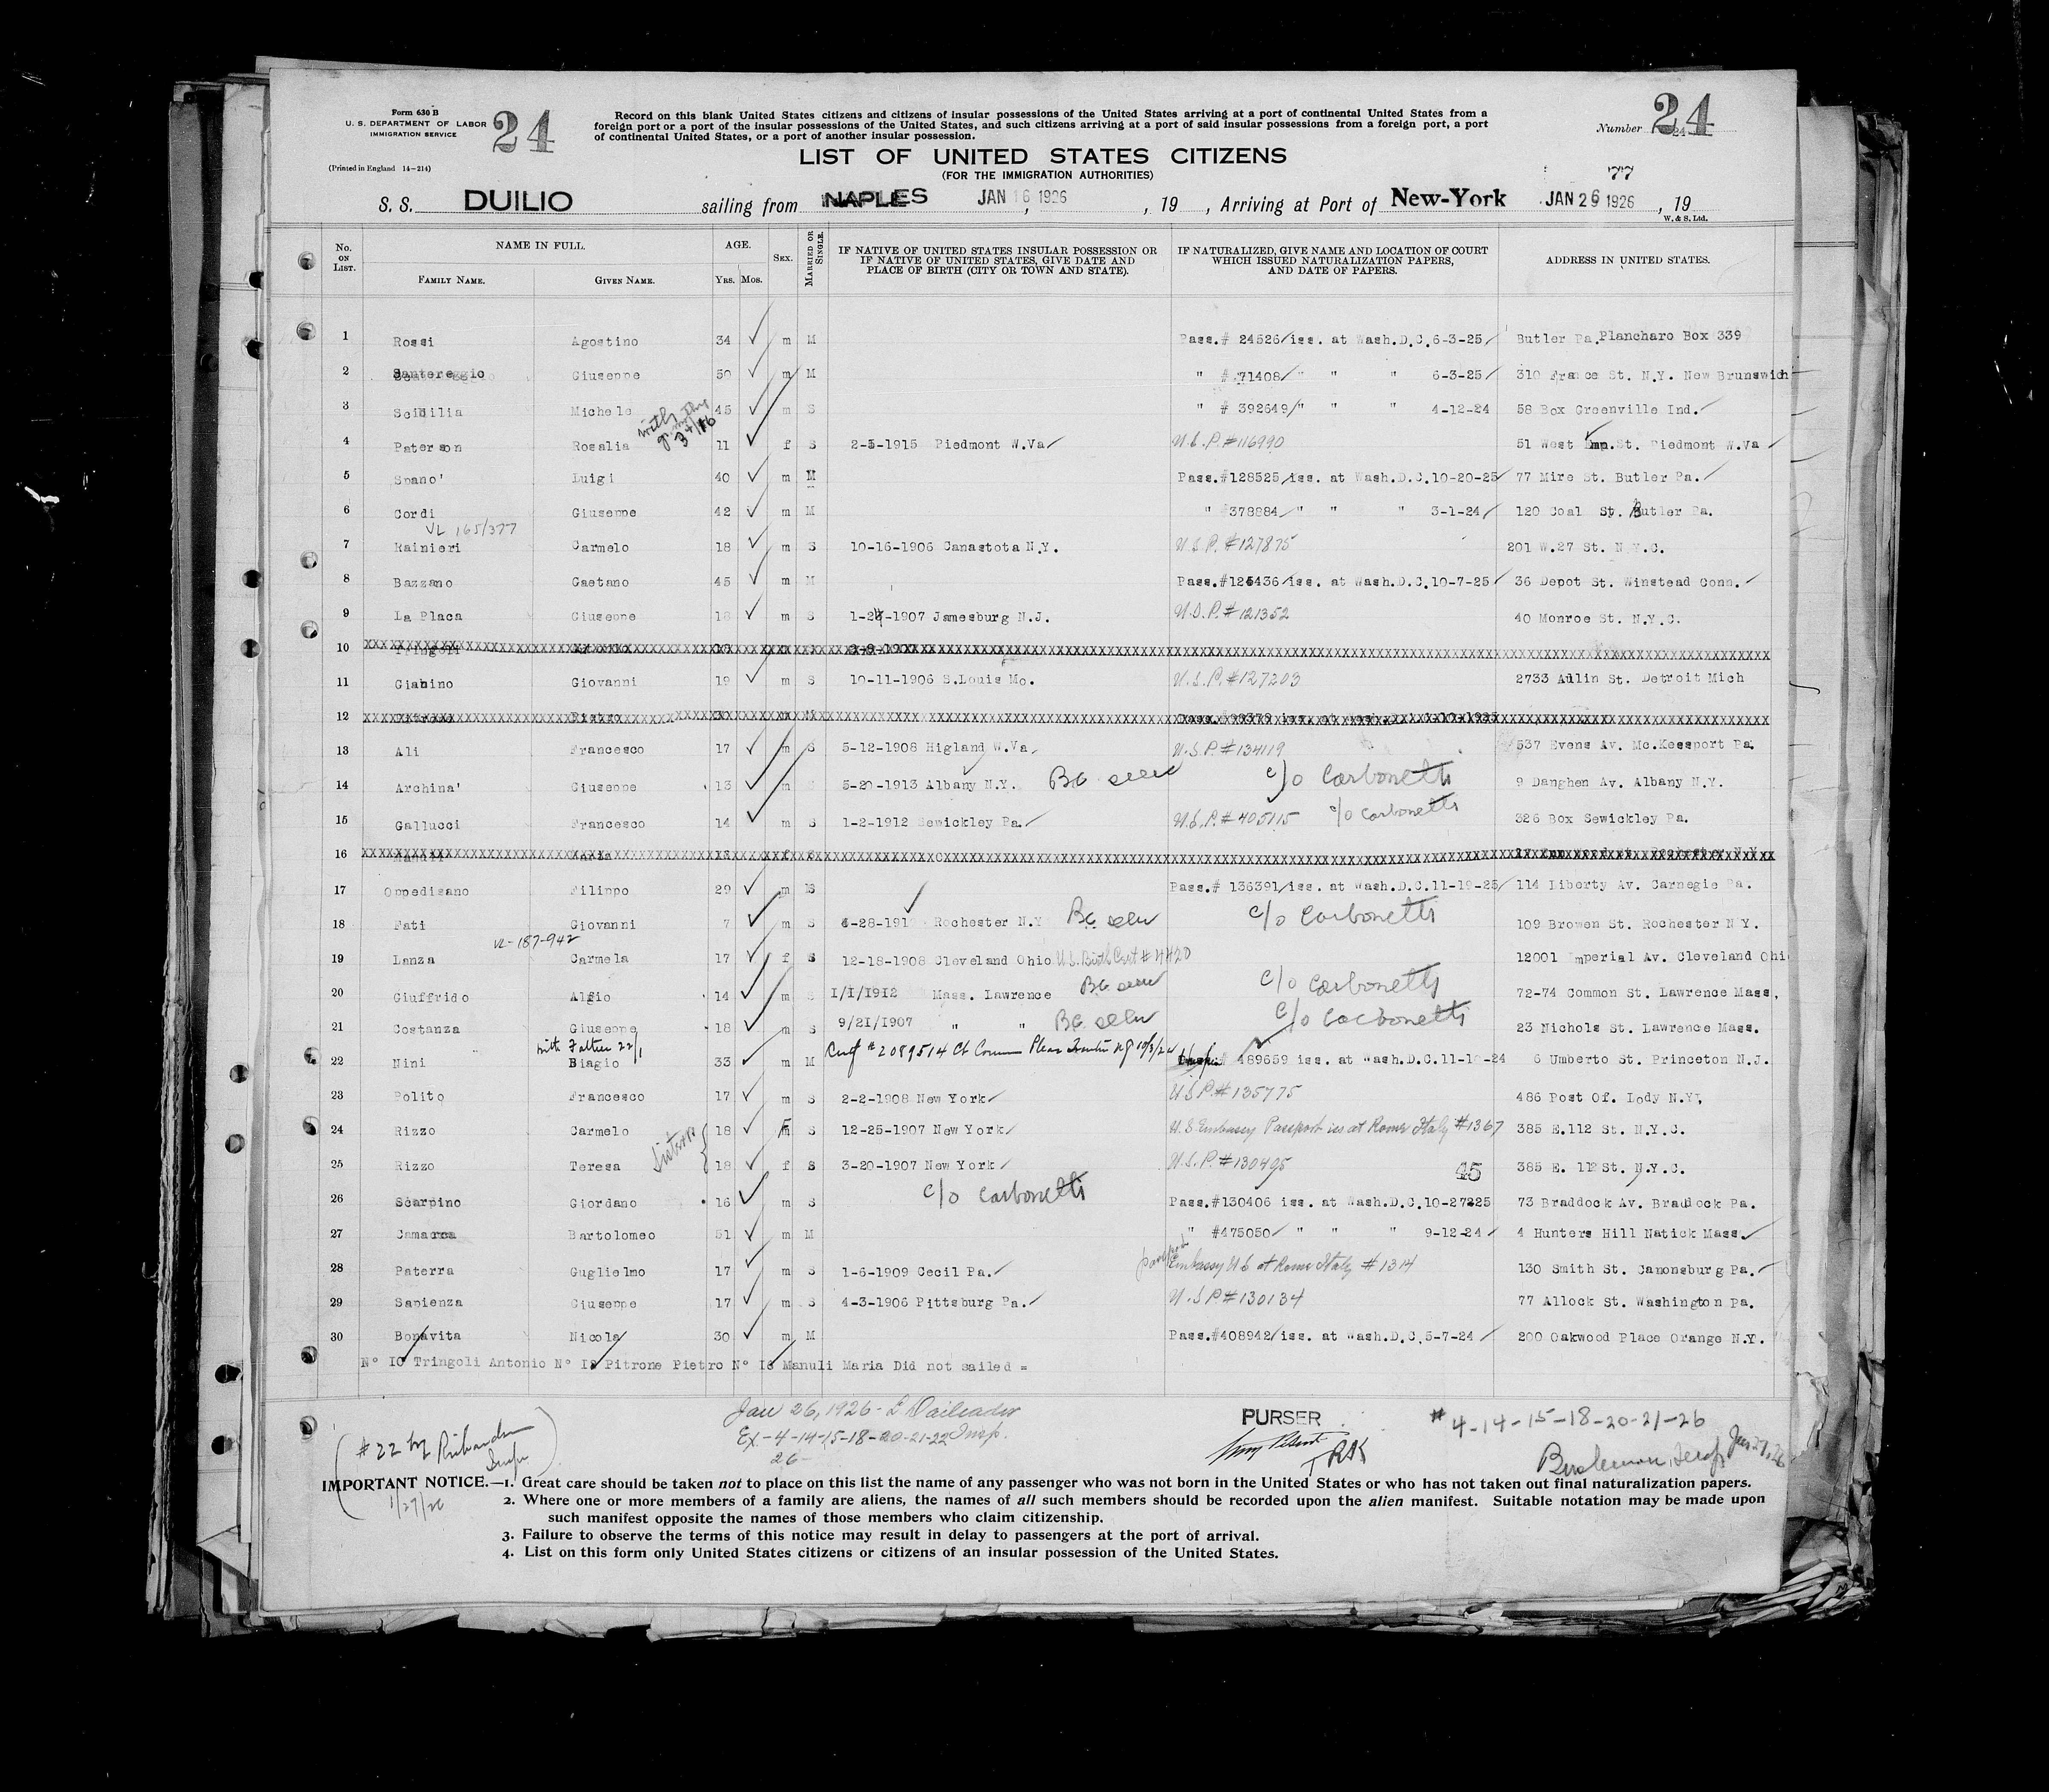 Form 630 B
U. S. DEPARTMENT OF LABOR
IMMIGRATION SERVICE
(Printed in England 14-214)
24
Record on this blank United States citizens and citizens of insular possessions of the United States arriving at a port of continental United States from a
foreign port or a port of the insular possessions of the United States, and such citizens arriving at a port of said insular possessions from a foreign port, a port
of continental United States, or a port of another insular possession.
Number 24
LIST OF UNITED STATES CITIZENS
(FOR THE IMMIGRATION AUTHORITIES)
77
S. S. DUILIO sailing from NAPLES JAN 16 1926, 19 , Arriving at Port of New-York JAN 26 1926, 19
W. & S. Ltd.
No. ON LIST. NAME IN FULL. AGE. SEX. MARRIED OR SINGLE. IF NATIVE OF UNITED STATES INSULAR POSSESSION OR IF NATIVE OF UNITED STATES, GIVE DATE AND PLACE OF BIRTH (CITY OR TOWN AND STATE). IF NATURALIZED, GIVE NAME AND LOCATION OF COURT WHICH ISSUED NATURALIZATION PAPERS, AND DATE OF PAPERS. ADDRESS IN UNITED STATES.
FAMILY NAME. GIVEN NAME. YRS. MOS.
1 Rossi Agostino 34 m M Pass.# 24526/iss. at Wash.D.C.6-3-25/ Butler Pa.Plancharo Box 339
2 Santereggio Giuseppe 50 m M " # 71408/ " " " 6-3-25/ 310 France St. N.Y. New Brunswich
3 Scibilia Michele 45 m S " # 392649/" " " 4-12-24 58 Box Greenville Ind.
4 Paterson Rosalia 11 f S 2-3-1915 Piedmont W.Va U.S.P.#116990 51 West Emp.St. Piedmont W.Va
5 Spano' Luigi 40 m M Pass.#128525/iss. at Wash.D.C.10-20-25/ 77 Mire St. Butler Pa.
6 Cordi Giuseppe 42 m M " 378884/ " " " 3-1-24/ 120 Coal St. Butler Pa.
VL 165/377
7 Rainieri Carmelo 18 m S 10-16-1906 Canastota N.Y. U.S.P.#127875 201 W.27 St. N.Y.C.
8 Bazzano Gaetano 45 m M Pass.#125436/iss. at Wash.D.C.10-7-25/ 36 Depot St. Winstead Conn.
9 La Placa Giuseppe 18 m S 1-24-1907 Jamesburg N.J. U.S.P.#121352 40 Monroe St. N.Y.C.
10
11 Gianino Giovanni 19 m S 10-11-1906 S.Louis Mo. U.S.P.#127203 2733 Allin St. Detroit Mich
12
13 Ali Francesco 17 m S 5-12-1908 Higland W.Va. U.S.P.#134119 537 Evens Av. Mc.Keesport Pa.
14 Archina' Giuseppe 13 m S 5-20-1913 Albany N.Y. BC seen c/o Carbonetti 9 Danghen Av. Albany N.Y.
15 Gallucci Francesco 14 m S 1-2-1912 Sewickley Pa. U.S.P.#405115 c/o Carbonetti 326 Box Sewickley Pa.
16
17 Oppedisano Filippo 29 m S Pass.# 136391/iss. at Wash.D.C.11-19-25/ 114 Liberty Av. Carnegie Pa.
18 Fati Giovanni 7 m S 4-28-191 Rochester N.Y BC seen c/o Carbonetti 109 Browen St. Rochester N Y.
VL-187-942
19 Lanza Carmela 17 f S 12-18-1908 Cleveland Ohio U.S. Birth Cert # 4420 12001 Imperial Av. Cleveland Ohi
20 Giuffrido Alfio 14 m S 1/1/1912 Mass. Lawrence BC seen c/o Carbonetti 72-74 Common St. Lawrence Mass,
21 Costanza Giuseppe 18 m S 9/21/1907 " " BC seen c/o Carbonetti 23 Nichols St. Lawrence Mass.
with Father 22/1
22 Nini Biagio 33 m M Cert # 2089514 Ct Common Pleas Trenton NJ 10/3/24 489659 iss. at Wash.D.C.11-10-24 6 Umberto St. Princeton N.J.
23 Polito Francesco 17 m S 2-2-1908 New York U.S.P.#135775 486 Post Of. Lody N.Y.
24 Rizzo Carmelo 18 F S 12-25-1907 New York U.S Embassy Passport iss at Rome Italy #1367 385 E.112 St. N.Y.C.
sisters
25 Rizzo Teresa 18 f S 3-20-1907 New York U.S.P.#130495 45 385 E. 112 St. N.Y.C.
26 Scarpino Giordano 16 m S c/o Carbonetti Pass.#130406 iss. at Wash.D.C.10-27225 73 Braddock Av. Braddock Pa.
27 Camarca Bartolomeo 51 m M " #475050/ " " " 9-12-24/ 4 Hunters Hill Natick Mass.
28 Paterra Guglielmo 17 m S 1-6-1909 Cecil Pa. passport Embassy US at Rome Italy #1314 130 Smith St. Canonsburg Pa.
29 Sapienza Giuseppe 17 m S 4-3-1906 Pittsburg Pa. U.S.P.#130134 77 Allock St. Washington Pa.
30 Bonavita Nicola 30 m M Pass.#408942/iss. at Wash.D.C.5-7-24 / 200 Oakwood Place Orange N.Y.
N° 10 Tringoli Antonio N° 12 Pitrone Pietro N° 16 Manuli Maria Did not sailed =
Jan 26, 1926
Ex-4-14-15-18-20-21-22 Insp.
26-
PURSER
# 4-14-15-18-20-21-26
Jan 27, 26
# 22 by Richardson
Insp
1/27/26
IMPORTANT NOTICE.—1. Great care should be taken not to place on this list the name of any passenger who was not born in the United States or who has not taken out final naturalization papers.
2. Where one or more members of a family are aliens, the names of all such members should be recorded upon the alien manifest. Suitable notation may be made upon
such manifest opposite the names of those members who claim citizenship.
3. Failure to observe the terms of this notice may result in delay to passengers at the port of arrival.
4. List on this form only United States citizens or citizens of an insular possession of the United States.